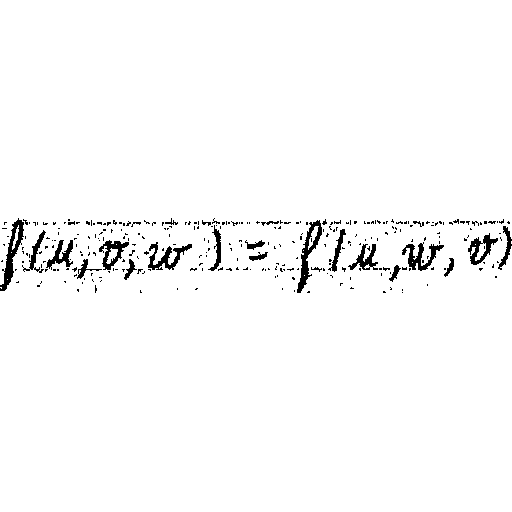 f(u,v,w) = f(u,w,v)